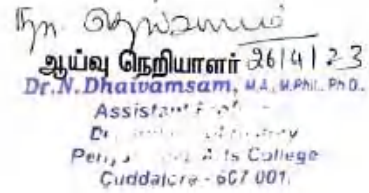 நா. தெய்வாம்சம்
ஆய்வு நெறியாளர் 26/4/23
Dr.N.Dhaivamsam, M.A., M.Phil., Ph.D.,
Assistant
Arts College
Cuddalore - 607 001.